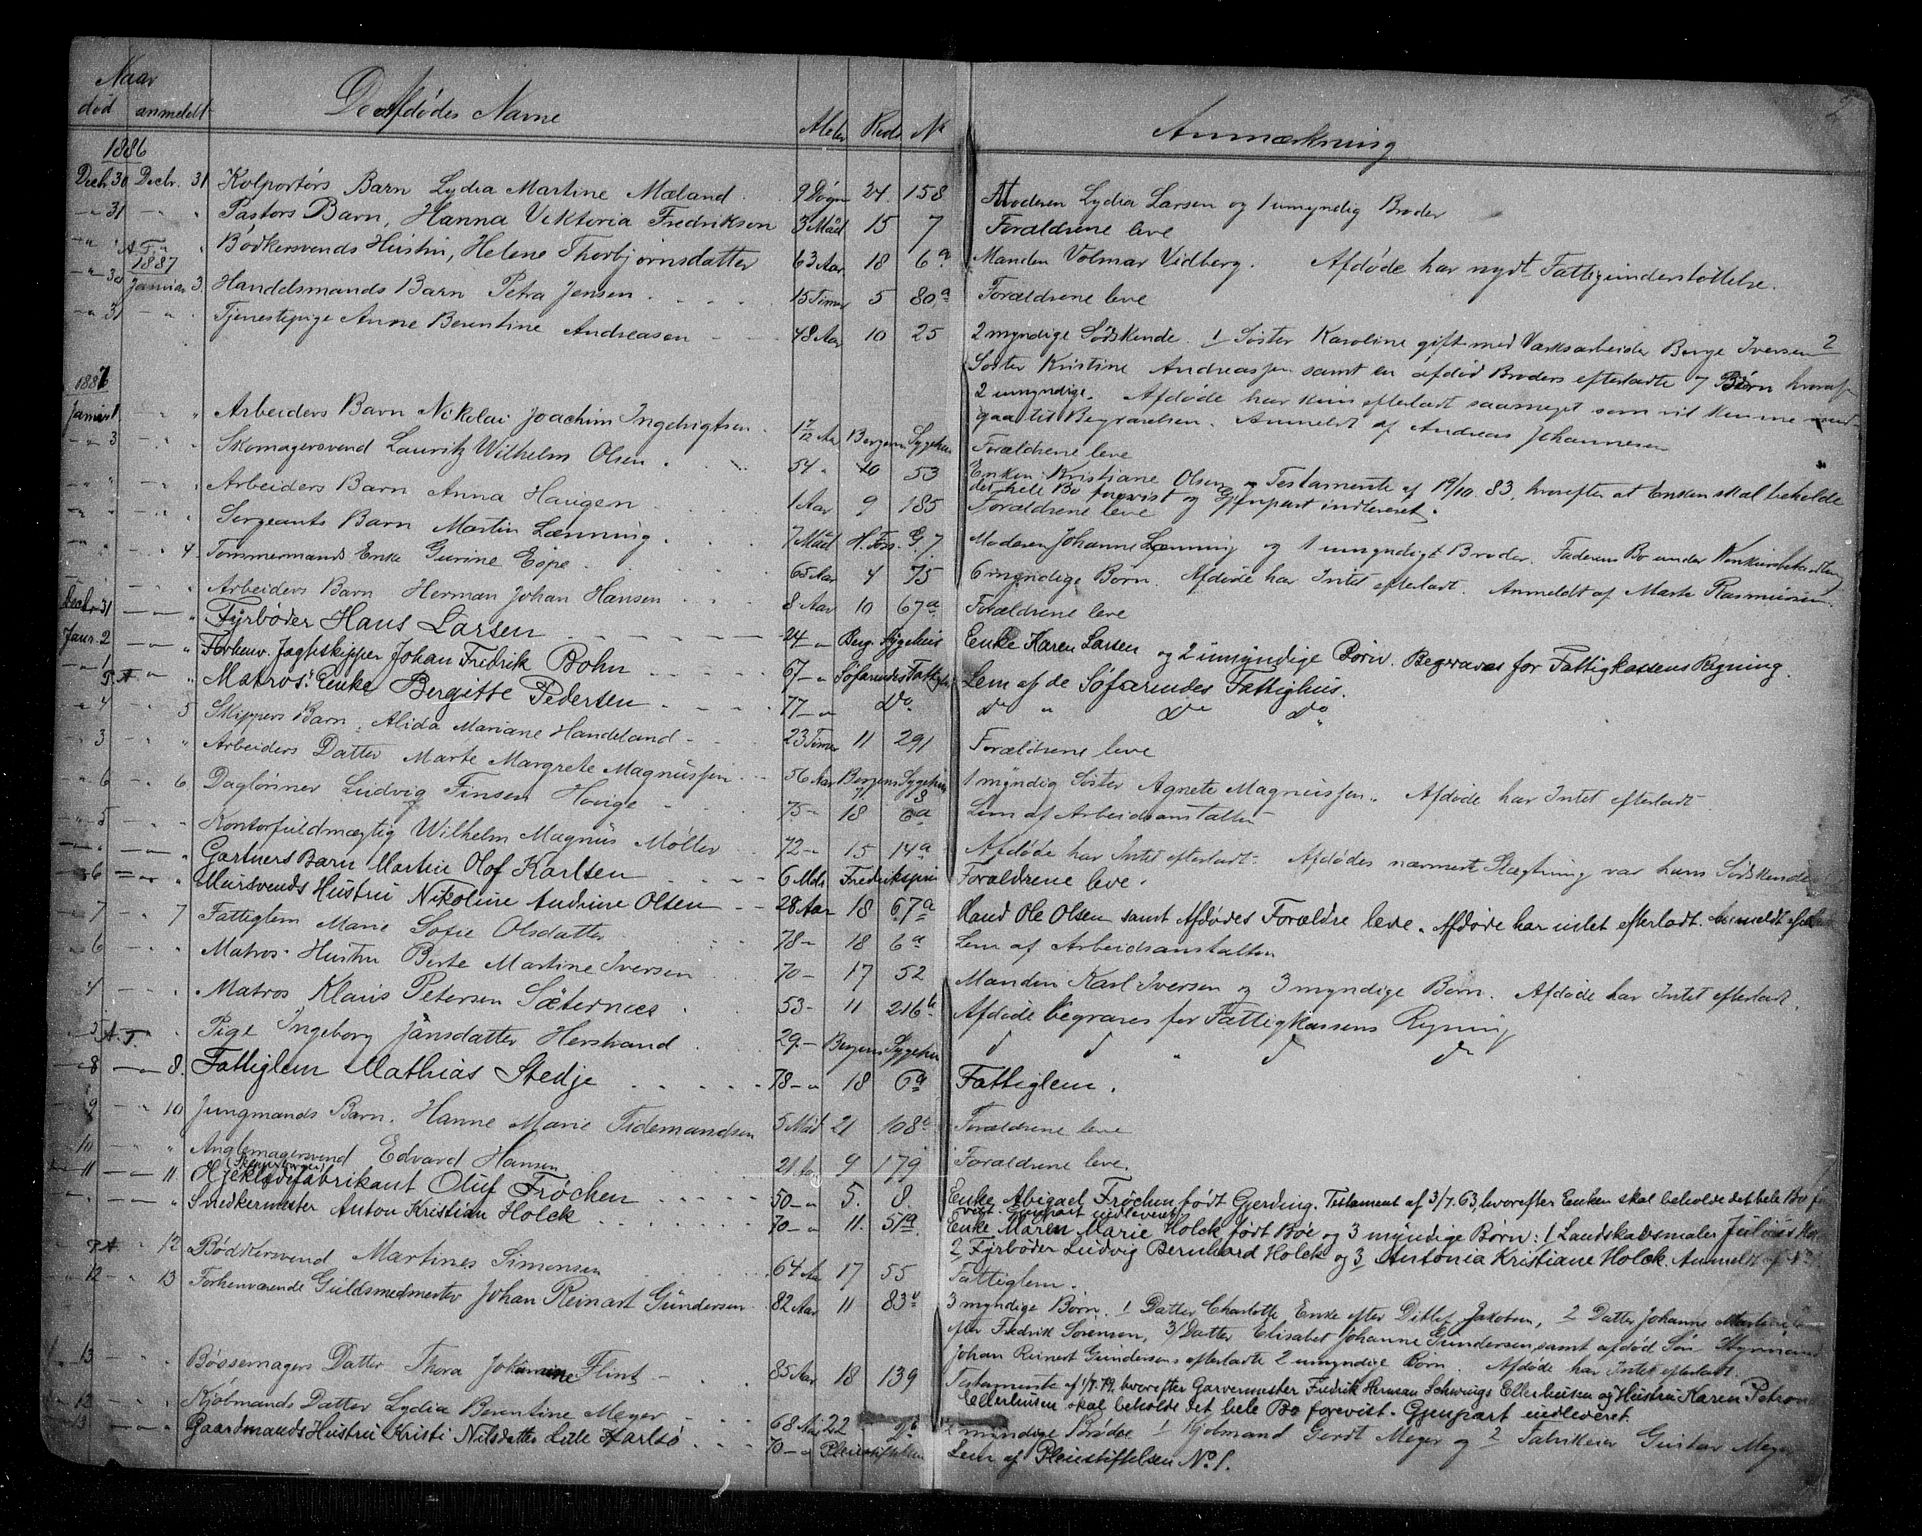 2
Naar
død anmeldt De Afdødes Navne Alder Rode No Anmærkning
1886
Decbr. 30 Decbr. 31 Kolportørs Barn Lydia Martine Mæland 9 Døgn 24. 158 Moderen Lydia Larsen og 1 umyndig Broder
" 31 - " Pastors Barn, Hanna Viktoria Fredriksen 3 Mdd 15 7 Forældrene leve
" " A. F. " Bødkersvends Hustru, Helene Thorbjørnsdatter 63 Aar 18 6a Manden Volmar Vidberg. Afdøde har nydt Fattigunderstøttelse.
1887
" 30 Januar 3. Handelsmands Barn Petra Jensen 15 Timer 5 80a Forældrene leve
" 31 - " Tjenestepige Anne Berentine Andreasen 48 Aar 10 25 2 myndige Sødskende. 1 Søster Karoline gift med Værksarbeider Berge Iversen 2
Søster Kristine Andreassen samt en afdød Broders efterladte 7 Børn hvoraf
2 umyndige. Afdøde har kun efterladt saameget som vil kunne med-
gaa til Begravelsen. Anmeldt af Andreas Johannesen
1887
Januar 1 - " Arbeiders Barn Nikolai Joachim Ingebrigtsen 1 7/12 Aar Bergens Sygehus Forældrene leve
" 3 - " Skomagersvend Lauritz Wilhelm Olsen 54 " 10 53 Enken Kristiane Olsen. Testamente af 19/10 83, hvorefter at Enken skal beholde
det hele Bo forevist og Gjenpart indleveret.
" " - " Arbeiders Barn Anna Haugen 1 Aar 9 185 Forældrene leve
" " - " Sergeants Barn Martin Lænning 7 Mdd H. Fors. G. 7. Moderen Johanne Lænning og 1 umyndigt Broder. Faderens Bo under Konkursbehandling
4 Tømmermands Enke Gurine Espe 65 Aar 4 75 6 myndige Børn. Afdøde har Intet efterladt. Anmeldt af Marte Rasmussen.
" Arbeiders Barn Herman Johan Hansen 8 Aar 10 67a Forældrene leve
Decbr 31 — " Fyrbøder Hans Larsen 24 — " Berg. Sygehus Enke Karen Larsen og 2 umyndige Børn. Begraves for Fattigkassens Regning.
Janr. 2 — " Forhenv. Jagtskipper Johan Fredrik Bohn 67 — " Søfarendes Fattighus Lem af de Søfarendes Fattighus.
" 1 — " Matros' Enke Bergitte Pedersen 77 — " Do. Do " Do Do
" 4 - 5 Skippers Barn, Alida Mariane Handeland 23 Timer 11 291 Forældrene leve
" 3 - " Arbeiders Datter Marte Margrete Magnussen 56 Aar Bergens Sygehus 1 myndig Søster Agnete Magnussen. Afdøde har Intet efterladt.
" 6 - 6 Daglønner Ludvig Finsen Hovige 75 - 18 6a Lem af Arbeidsanstalten
" 5 - " Kontorfuldmægtig Wilhelm Magnus Møller 72 - 15 14a Afdøde har Intet efterladt. Afdødes nærmeste Slægtning var hans Sødskende
" " — " Gartners Barn Martin Olof Karlsen 6 Mdr. Fredriksjem Forældrene leve.
" 6 — " Mursvends Hustru Nikoline Andrine Olsen 28 Aar 18 67a Mand Ole Olsen samt Afdødes Forældre leve. Afdøde har intet efterladt. Anmeldt af
" 7 - 7 Fattiglem Marie Sofie Olsdatter 78 - 18 6a Lem af Arbeidsanstalten
" 6 - " Matros Hustru Berte Martine Iversen 70 - 17 52 Manden Karl Iversen og 3 myndige Børn. Afdøde har Intet efterladt.
" 4 - " Matros Klaus Petersen Sæternes 53 - 11 216b Afdøde begraves for Fattigkassens Regning
" 5 A. F. " Pige Ingeborg Jansdatter Herstrand 29 - Bergens Sygehus d d " d do
" 8 — 8. Fattiglem Mathias Stedje 78 — " 18 6a Fattiglem.
" 9 - 10 Jungmands Barn. Hanne Marie Tidemandsen 5 Mdd 21 108b Forældrene leve
" 10 - " Anglemagersvend Edvard Hansen 21 Aar 9 179 Forældrene leve.
" 11 — 11 Hjeklædefabrikant Oluf Frøchen 50 — " 5. 8. Enke Abigael Frøchen født Gjerding. Testament af 3/7. 63, hvorefter Enken skal beholde det hele Bo fore-
vist. Gjenpart indleveret
" Snedkermester Anton Kristian Holck 70 — " 11. 51a Enke Maren Marie Holck født Bøe og 3 myndige Børn: 1 Landskabsmaler Julius Holck
2 Fyrbøder Ludvig Bernhard Holck og 3 Antonia Kristiane Holck. Anmeldt af No 3
" 9 A 12 Bødkersvend Martines Simonsen 64 Aar 17 55 Fattiglem.
" 12 - 13 Forhenværende Guldsmedmester Johan Reinart Gundersen 82 Aar 11 83b 3 myndige Børn. 1 Datter Charlotte, Enke efter Ditlef Jakobsen, 2 Datter Johanne Martine Enke
efter Fredrik Sørensen, 3 Datter Elisabet Johanne Gundersen, samt afdød Søn Styrmand
Johan Reinert Gundersens efterladte 2 umyndige Børn. Afdøde har Intet efterladt.
" 13 - " Bøssemagers Datter Thora Johanne Flint 85 Aar 18 139 Testamente af 1/7. 79, hvorefter Garvermester Fredrik Herman Schwings Ellerhusen og Hustru Karen Petrone
Ellerhusen skal beholde det hele Bo forevist. Gjenpart indleveret.
" 12 - " Kjølmands Datter Lydia Berentine Meyer 68 Aar 22 2 myndige Brødre 1 Kjølmand Gerdt Meyer og 2 Fabrikeier Gustav Meyer
" 13 - " Gaardmands Hustru Kristi Nilsdatter Lille Aarlsø 70 — " Pleiestiftelsen Lem af Pleiestiftelsen No 1.